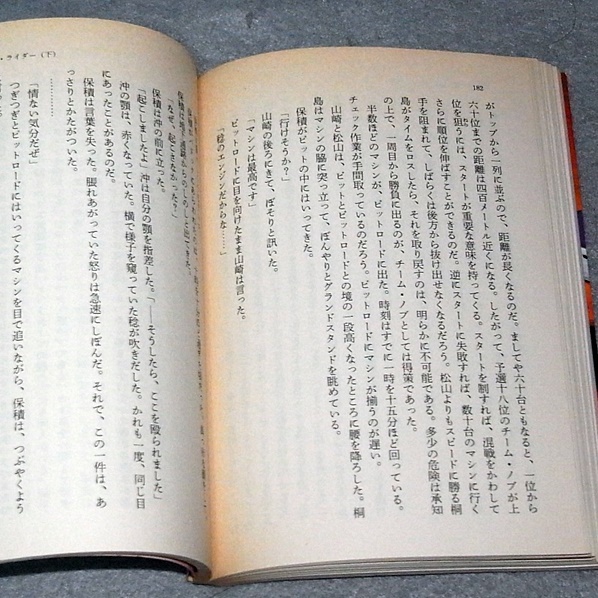 182
がトップから一列に並ぶので、距離が長くなるのだ。ましてや六十台ともなると、一位から
六十位までの距離は四百メートル近くになる。したがって、予選十八位のチーム・ノブが上
位を狙うには、スタートが重要な意味を持ってくる。スタートを制すれば、混戦をかわして
さらに順位を伸ばすことができるのだ。逆にスタートに失敗すれば、数十台のマシンに行く
手を阻まれて、しばらくは後方から抜け出せなくなるだろう。松山よりもスピードに勝る桐
島がタイムをロスしたら、それを取り戻すのは、明らかに不可能である。多少の危険は承知
の上で、一周目から勝負に出るのが、チーム・ノブとしては得策であった。
半数ほどのマシンが、ピットロードに出た。時刻はすでに一時を十五分ほど回っている。
チェック作業が手間取っているのだろう。ピットロードにマシンが揃うのが遅い。
山崎と松山は、ピットとピットロードとの境の一段高くなったところに腰を降ろした。桐
島はマシンの脇に突っ立って、ぼんやりとグランドスタンドを眺めている。
保積がピットの中にはいってきた。
「行けそうか?」
山崎の後ろにきて、ぼそりと訊いた。
「マシンは最高です」
ピットロードに目を向けたまま山崎は言った。
「稔のエンジンだからな……」
・ライダー(下)
「なぜ、起こさなかった?」
保積は沖の前に立った。
「起こしましたよ」沖は自分の顎を指差した。「――そうしたら、ここを殴られました」
沖の顎は、赤くなっていた。横で様子を窺っていた稔が吹きだした。かれも一度、同じ目
にあったことがあるのだ。
保積は言葉を失った。脹れあがっていた怒りは急速にしぼんだ。それで、この一件は、あ
っさりとかたがついた。
…………
「情ない気分だぜ」
つぎつぎとピットロードにはいってくるマシンを目で追いながら、保積は、つぶやくよう